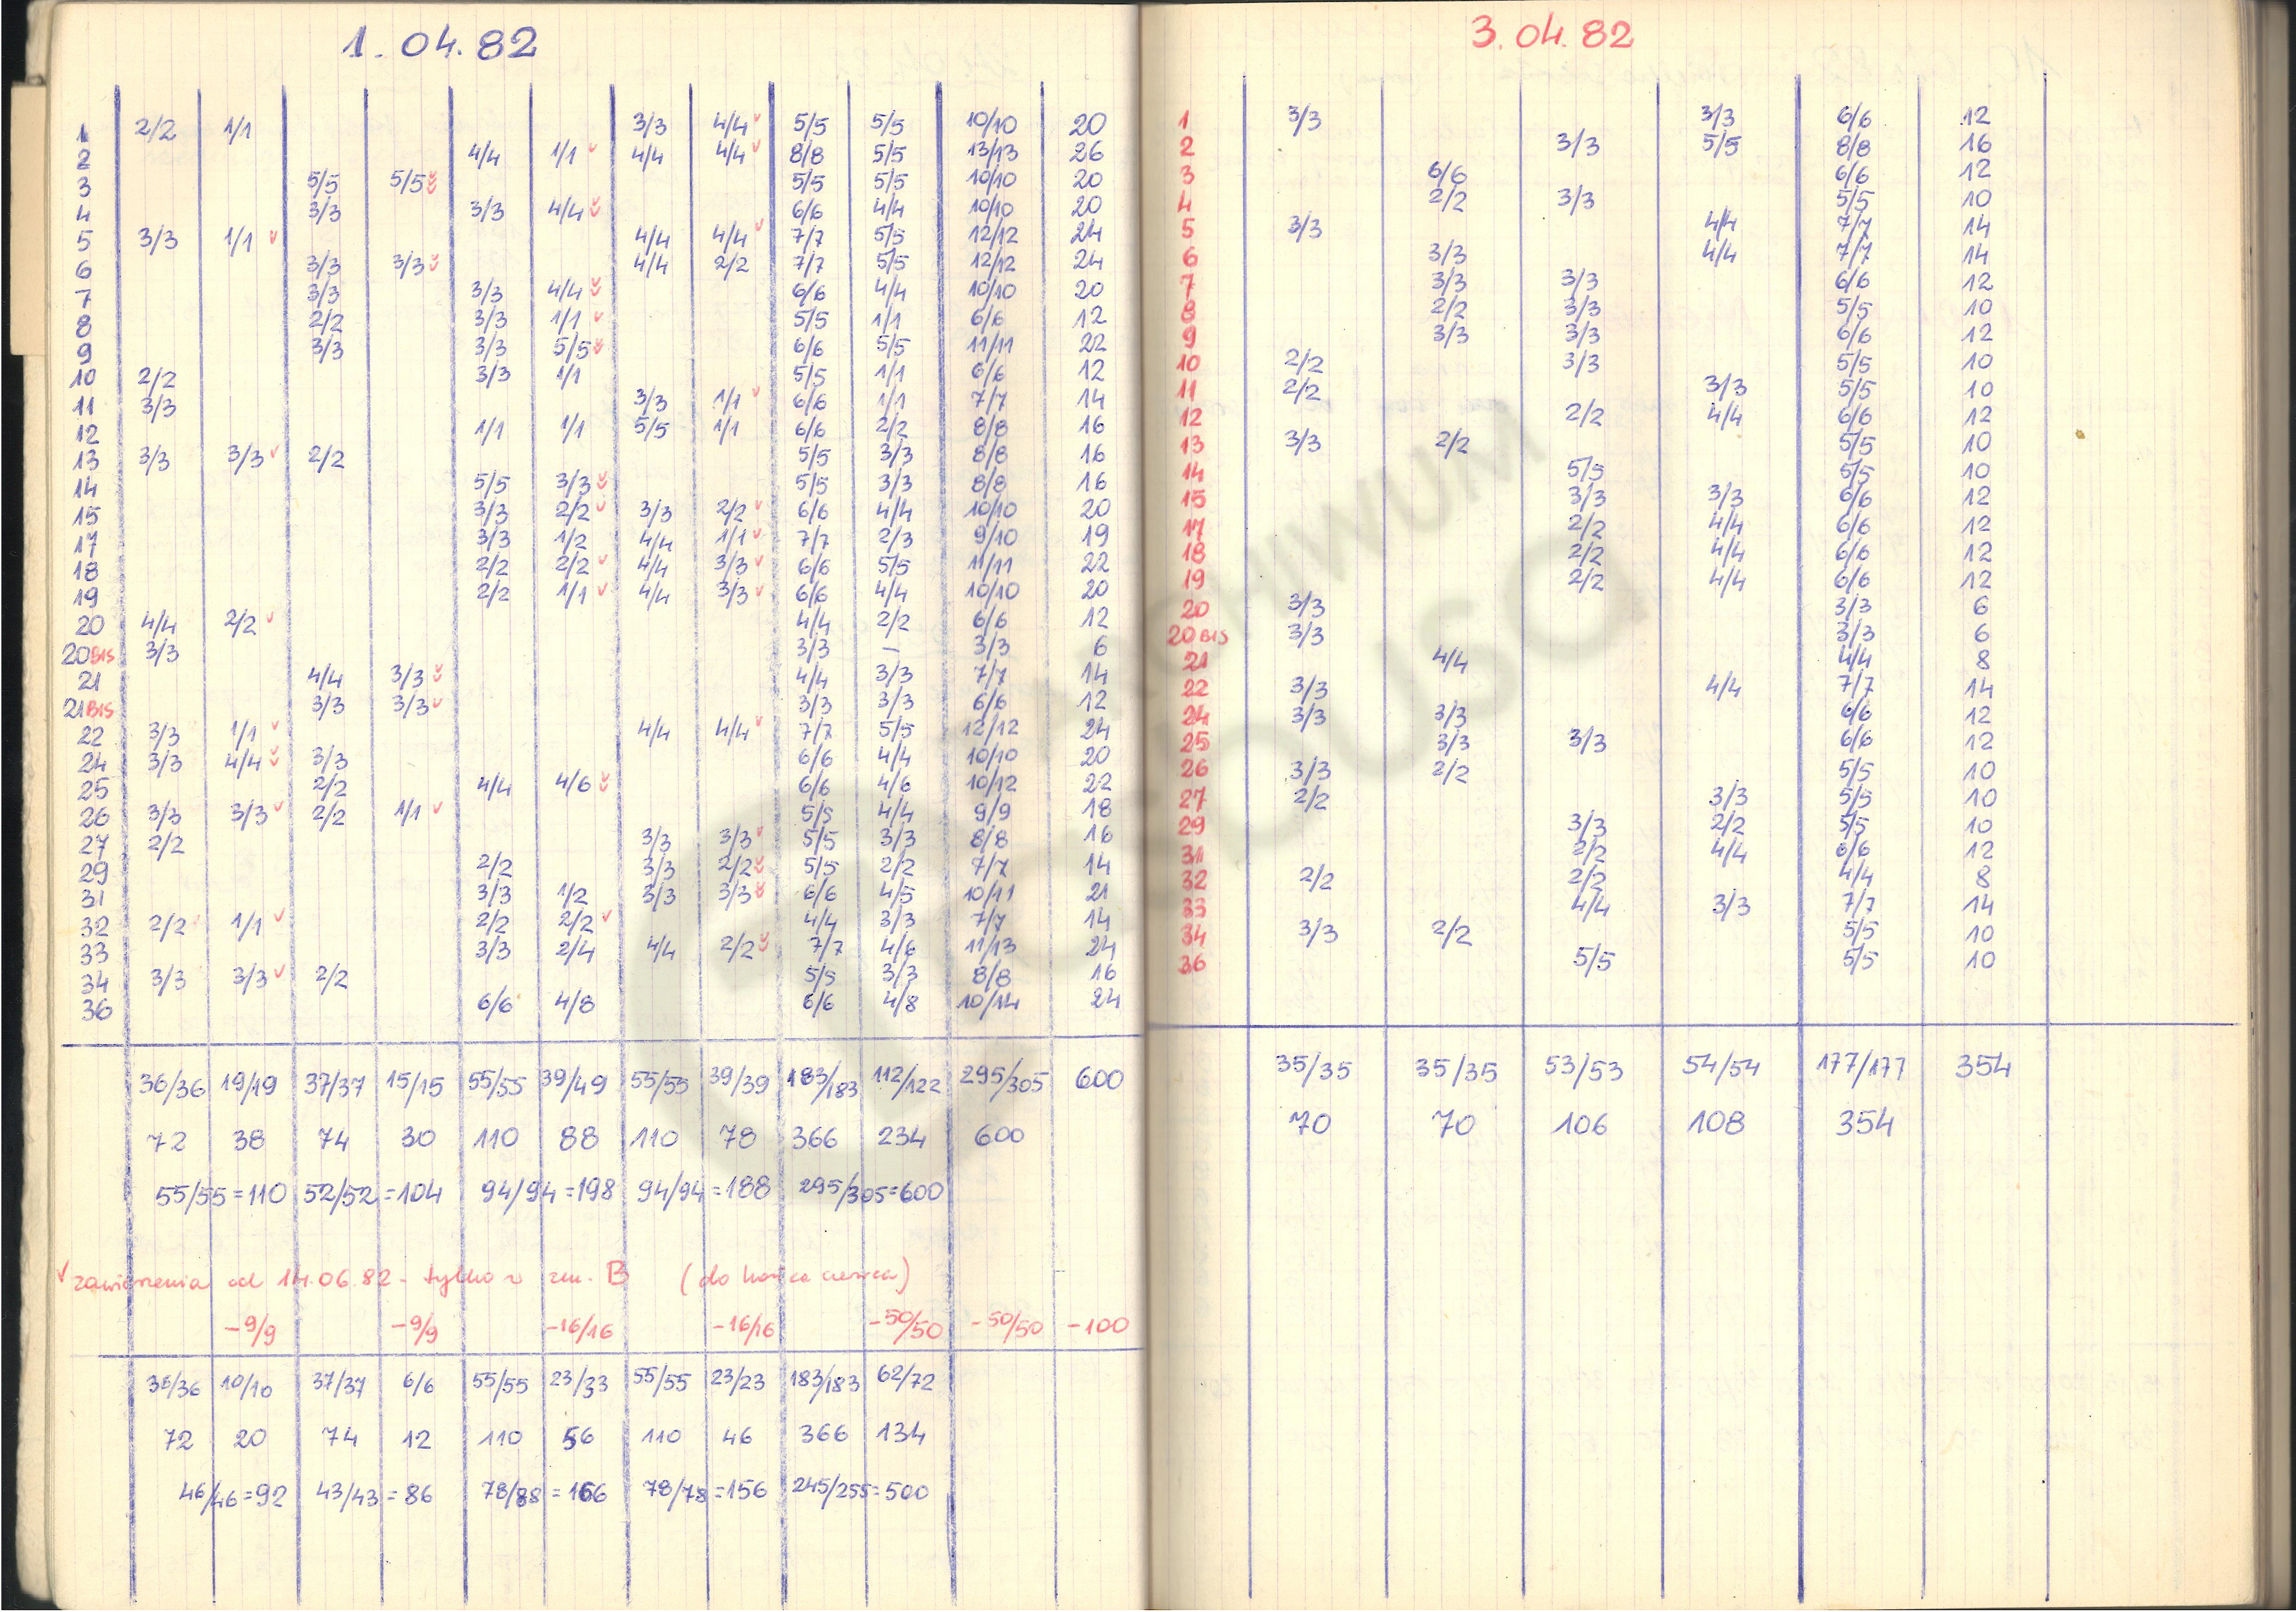 1. 04. 82
1 2/2 1/1 3/3 4/4 ✓ 5/5 5/5 10/10 20
2 4/4 1/1 ✓ 4/4 4/4 ✓ 8/8 5/5 13/13 26
3 5/5 5/5 ✓✓ 5/5 5/5 10/10 20
4 3/3 3/3 4/4 ✓✓ 6/6 4/4 10/10 20
5 3/3 1/1 ✓ 4/4 4/4 ✓ 7/7 5/5 12/12 24
6 3/3 3/3 ✓✓ 4/4 2/2 7/7 5/5 12/12 24
7 3/3 3/3 4/4 ✓✓ 6/6 4/4 10/10 20
8 2/2 3/3 1/1 ✓ 5/5 1/1 6/6 12
9 3/3 3/3 5/5 ✓✓ 6/6 5/5 11/11 22
10 2/2 3/3 1/1 5/5 1/1 6/6 12
11 3/3 3/3 1/1 ✓ 6/6 1/1 7/7 14
12 1/1 1/1 5/5 1/1 6/6 2/2 8/8 16
13 3/3 3/3 ✓ 2/2 5/5 3/3 8/8 16
14 5/5 3/3 ✓✓ 5/5 3/3 8/8 16
15 3/3 2/2 ✓ 3/3 2/2 ✓ 6/6 4/4 10/10 20
17 3/3 1/2 4/4 1/1 ✓ 7/7 2/3 9/10 19
18 2/2 2/2 ✓ 4/4 3/3 ✓ 6/6 5/5 11/11 22
19 2/2 1/1 ✓ 4/4 3/3 ✓ 6/6 4/4 10/10 20
20 4/4 2/2 ✓ 4/4 2/2 6/6 12
20 BIS 3/3 3/3 – 3/3 6
21 4/4 3/3 ✓✓ 4/4 3/3 7/7 14
21 BIS 3/3 3/3 ✓ 3/3 3/3 6/6 12
22 3/3 1/1 ✓ 4/4 4/4 ✓ 7/7 5/5 12/12 24
24 3/3 4/4 ✓✓ 3/3 6/6 4/4 10/10 20
25 2/2 4/4 4/6 ✓✓ 6/6 4/6 10/12 22
26 3/3 3/3 ✓ 2/2 1/1 ✓ 5/5 4/4 9/9 18
27 2/2 3/3 3/3 ✓ 5/5 3/3 8/8 16
29 2/2 3/3 2/2 ✓✓ 5/5 2/2 7/7 14
31 3/3 1/2 3/3 3/3 ✓✓ 6/6 4/5 10/11 21
32 2/2 1/1 ✓ 2/2 2/2 ✓ 4/4 3/3 7/7 14
33 3/3 2/4 4/4 2/2 ✓✓ 7/7 4/6 11/13 24
34 3/3 3/3 ✓ 2/2 5/5 3/3 8/8 16
36 6/6 4/8 6/6 4/8 10/14 24
36/36 19/19 37/37 15/15 55/55 39/49 55/55 39/39 183/183 112/122 295/305 600
72 38 74 30 110 88 110 78 366 234 600
55/55=110 52/52=104 94/94=198 94/94=188 295/305=600
✓ zawieszenia od 14.06.82 - tylko w zm. B (do końca czerwca)
-9/9 -9/9 -16/16 -16/16 -50/50 -50/50 -100
36/36 10/10 37/37 6/6 55/55 23/33 55/55 23/23 183/183 62/72
72 20 74 12 110 56 110 46 366 134
46/46=92 43/43=86 78/88=166 78/78=156 245/255=500
3. 04. 82
1 3/3 3/3 6/6 12
2 3/3 5/5 8/8 16
3 6/6 6/6 12
4 2/2 3/3 5/5 10
5 3/3 4/4 7/7 14
6 3/3 4/4 7/7 14
7 3/3 3/3 6/6 12
8 2/2 3/3 5/5 10
9 3/3 3/3 6/6 12
10 2/2 3/3 5/5 10
11 2/2 3/3 5/5 10
12 2/2 4/4 6/6 12
13 3/3 2/2 5/5 10
14 5/5 5/5 10
15 3/3 3/3 6/6 12
17 2/2 4/4 6/6 12
18 2/2 4/4 6/6 12
19 2/2 4/4 6/6 12
20 3/3 3/3 6
20 BIS 3/3 3/3 6
21 4/4 4/4 8
22 3/3 4/4 7/7 14
24 3/3 3/3 6/6 12
25 3/3 3/3 6/6 12
26 3/3 2/2 5/5 10
27 2/2 3/3 5/5 10
29 3/3 2/2 5/5 10
31 2/2 4/4 6/6 12
32 2/2 2/2 4/4 8
33 4/4 3/3 7/7 14
34 3/3 2/2 5/5 10
36 5/5 5/5 10
35/35 35/35 53/53 54/54 177/177 354
70 70 106 108 354